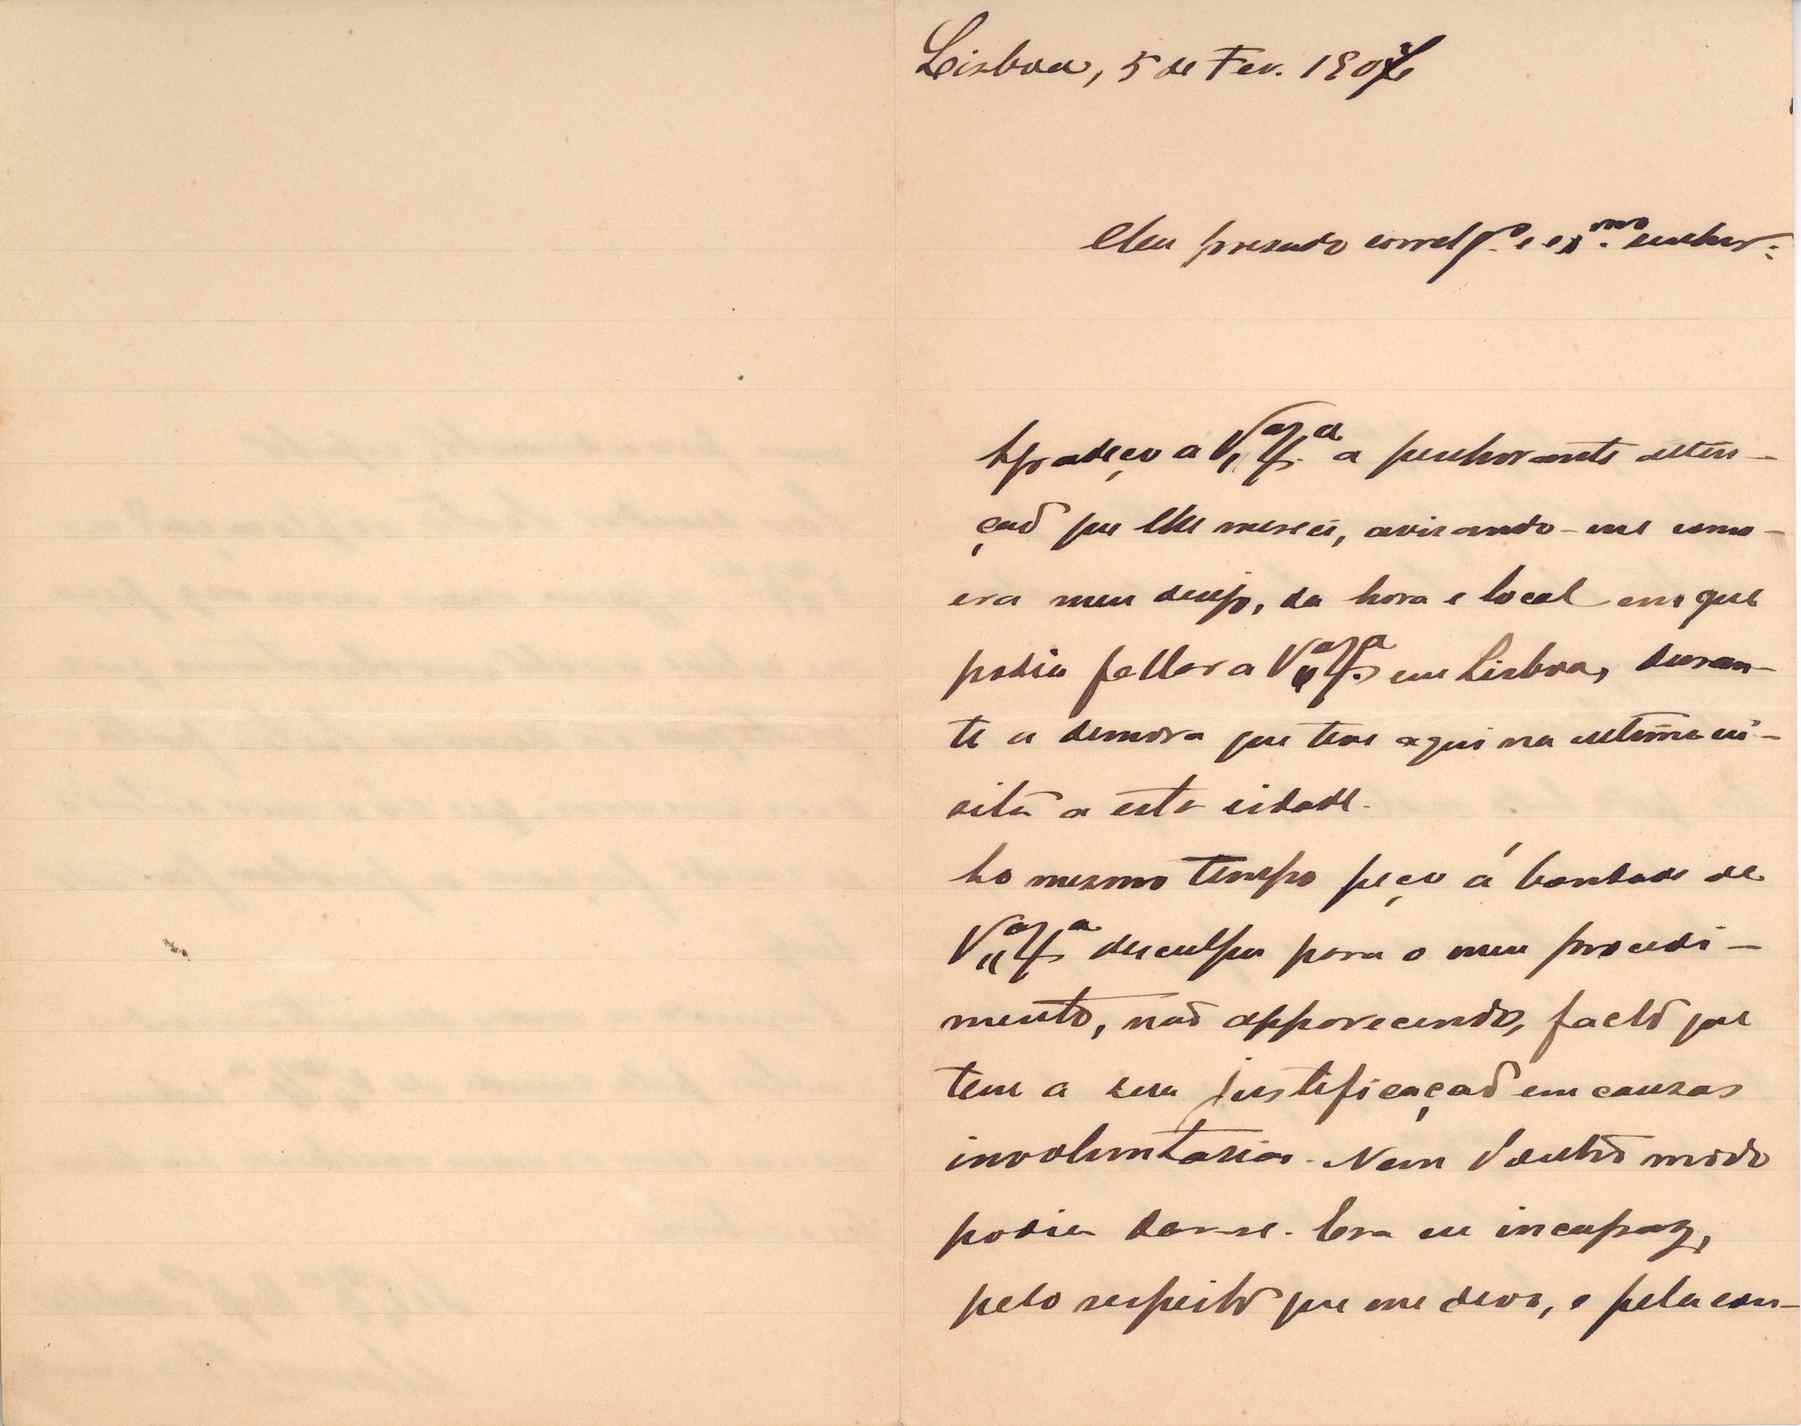 Lisboa, 5 de Fev. 190
Meu presado correlg.º e ex.mo senhor:
Agradeço a V. Ex.ª a penhorante atten-
ção que lhe mereci, avisando-me como
era meu desejo, da hora e local em que
podia fallar a V. Ex.ª em Lisboa, duran-
te a demora que teve aqui na ultima vi-
sita a esta cidade.
Ao mesmo tempo peço á bondade de
V. Ex.ª desculpa para o meu procedi-
mento, não apparecendo, facto que
tem a sua justificação em causas
involuntarias. Nem d'outro modo
podia dar-se. Era eu incapaz,
pelo respeito que me devo, e pela con-